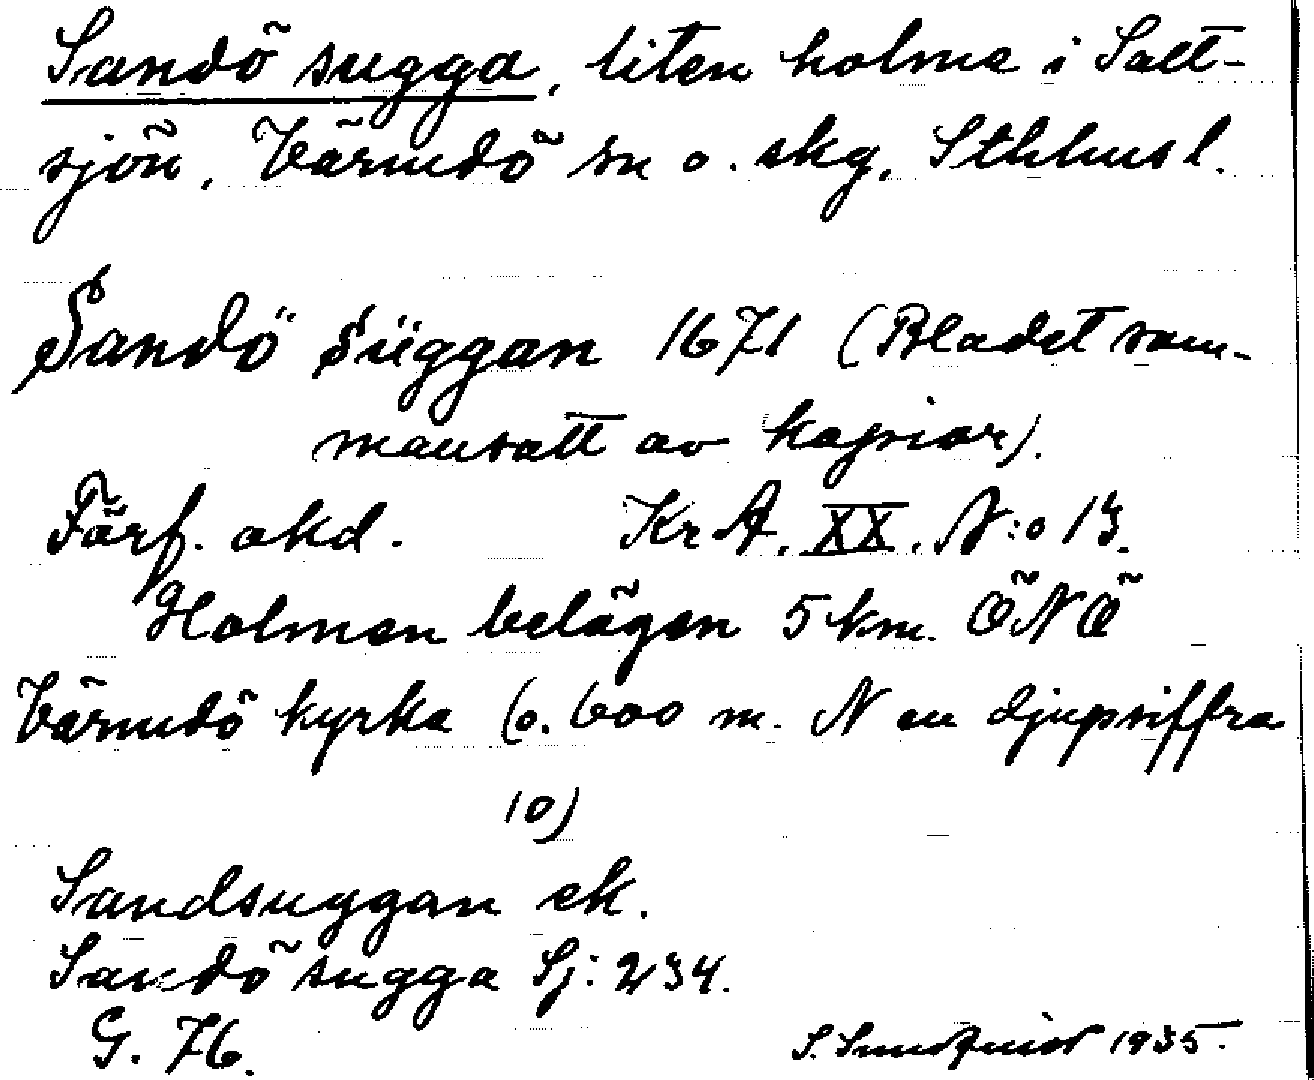 Sandö sugga, liten holme i Salt-
sjön, Värmdö sn o. skg, Sthlms l.
Sandö Süggan 1671 (Bladet sam-
mansatt av kopior).
Förf. okd. Kr A. XX. N:o 13.
Holmen belägen 5 km. ÖNÖ
Värmdö kyrka (o. 600 m. N en djupsiffra
10)
Sandsuggan ek.
Sandö sugga Sj: 234.
G. 76. S. Sundquist 1935.